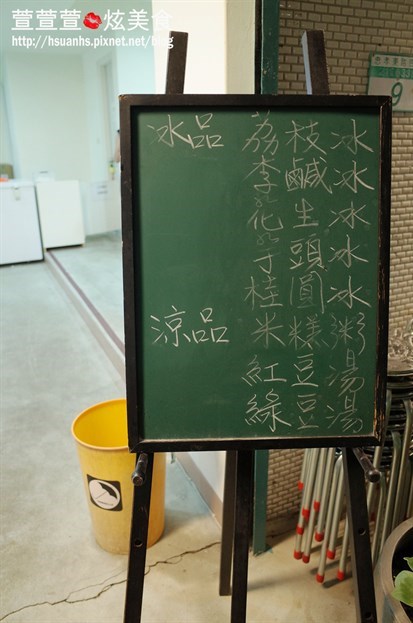 萱萱萱 炫美食
http://hsuanhs.pixnet.net/blog
冰品 荔枝冰
李鹹冰
花生冰
芋頭冰
桂圓冰
涼品 米糕粥
紅豆湯
綠豆湯
9